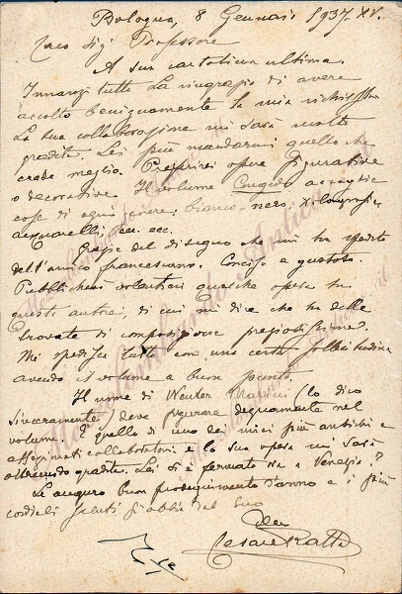 Bologna, 8 Gennaio 1937. XV.
Caro Sig. Professore
A sua cartolina ultima.
Innanzi tutto La ringrazio di avere
accolto benignamente la mia richiesta
La sua collaborazione mi sarà molto
gradita. Lei può mandarmi quello che
crede meglio. Preferirei opere figurative
o decorative. Il volume accoglie
cose di ogni genere: bianco-nero, xilografie
acquarelli, ecc. ecc.
Grazie del disegno che mi ha spedito
dell'amico francescano. Conciso e gustoso.
Pubblicherò volentieri qualche opera di
questo autore, di cui mi dice che ha delle
trovate di composizione preziosissime.
Mi spedisca tutto con una certa sollecitudine
avendo il volume a buon punto.
Il nome di (lo dico
sinceramente) deve figurare degnamente nel
volume. È quello di uno dei miei più antichi e
affezionati collaboratori e la sua opera mi sarà
gradita. Lei si è fermato a Venezia?
Le auguro buon proseguimento d'anno e i più
cordiali saluti dal Suo
Cesare Ratta